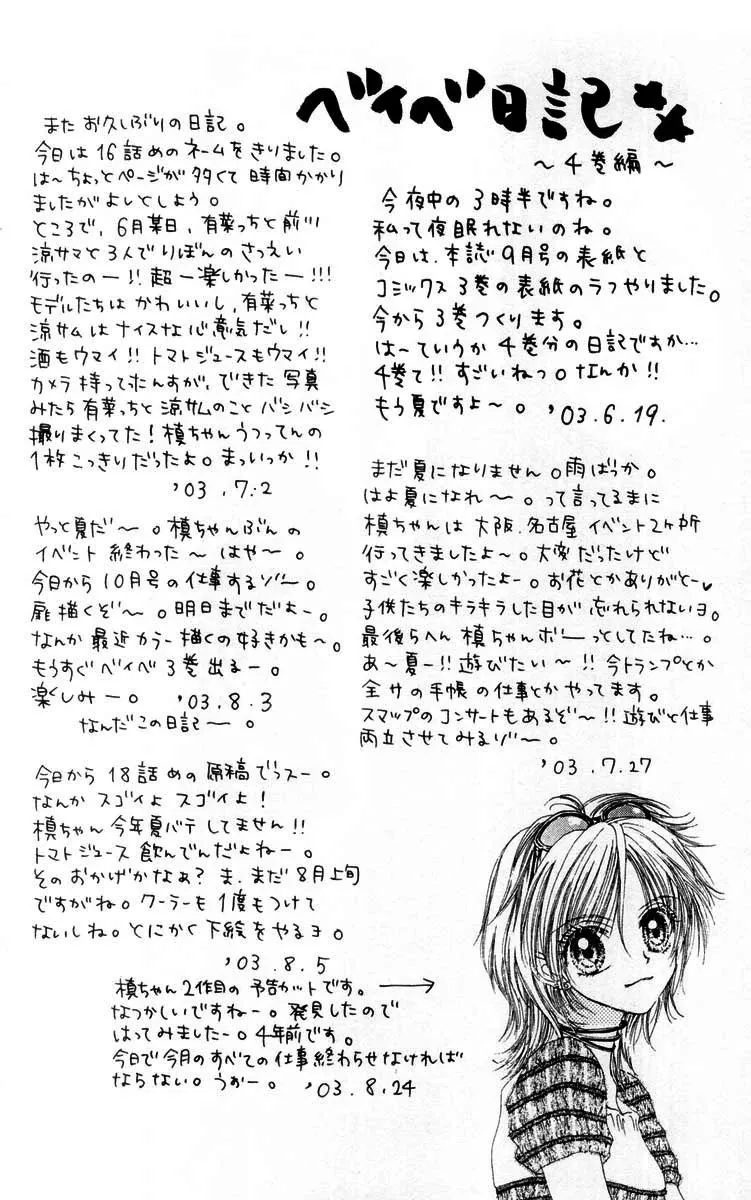 ベイベ日記
～4巻編～
今夜中の3時半ですね。
私って夜眠れないのね。
今日は、本誌9月号の表紙と
コミックス3巻の表紙のラフやりました。
今から3巻つくります。
は～ていうか4巻分の日記ですか…
4巻て!!すごいねっ。なんか!!
もう夏ですよ～。'03.6.19.
まだ夏になりません。雨ばっか。
はよ夏になれ～。って言ってるまに
槙ちゃんは大阪、名古屋イベント2ヶ所
行ってきましたよ～。大変だったけど
すごく楽しかったよー。お花とかありがとー♥
子供たちのキラキラした目が忘れられないヨ。
最後らへん槙ちゃんボーっとしてたね…。
あ～夏ー!!遊びたい～!!今トランプとか
全サの手帳の仕事とかやってます。
スマップのコンサートもあるぞ～!!遊びと仕事
両立させてみるゾ～。
'03.7.27
またお久しぶりの日記。
今日は16話めのネームをきりました。
は～ちょっとページが多くて時間かかり
ましたがよしとしよう。
ところで、6月某日、有菜っちと前川
涼サマと3人でりぼんのさつえい
行ったのー!!超ー楽しかったー!!!
モデルたちはかわいいし、有菜っちと
涼サムはナイスな心意気だし!!
酒もウマイ!!トマトジュースもウマイ!!
カメラ持ってたんすが、できた写真
みたら有菜っちと涼サムのことバシバシ
撮りまくってた!槙ちゃんうつってんの
1枚こっきりだったよ。まっいっか!!
'03.7.2
やっと夏だ～。槙ちゃんぶんの
イベント終わった～はや～。
今日から10月号の仕事するゾ～。
扉描くぞ～。明日までだよー。
なんか最近カラー描くの好きかも～。
もうすぐベイベ3巻出るー。
楽しみー。'03.8.3
なんだこの日記ー。
今日から18話めの原稿でっスー。
なんかスゴイよスゴイよ!
槙ちゃん今年夏バテしてません!!
トマトジュース飲んでんだよねー。
そのおかげかなぁ?ま、まだ8月上旬
ですがね。クーラーも1度もつけて
ないしね。とにかく下絵をやるヨ。
'03.8.5
槙ちゃん2作目の予告カットです。→
なつかしいですねー。発見したので
はってみましたー。4年前です。
今日で今月のすべての仕事終わらせなければ
ならない。うおー。'03.8.24